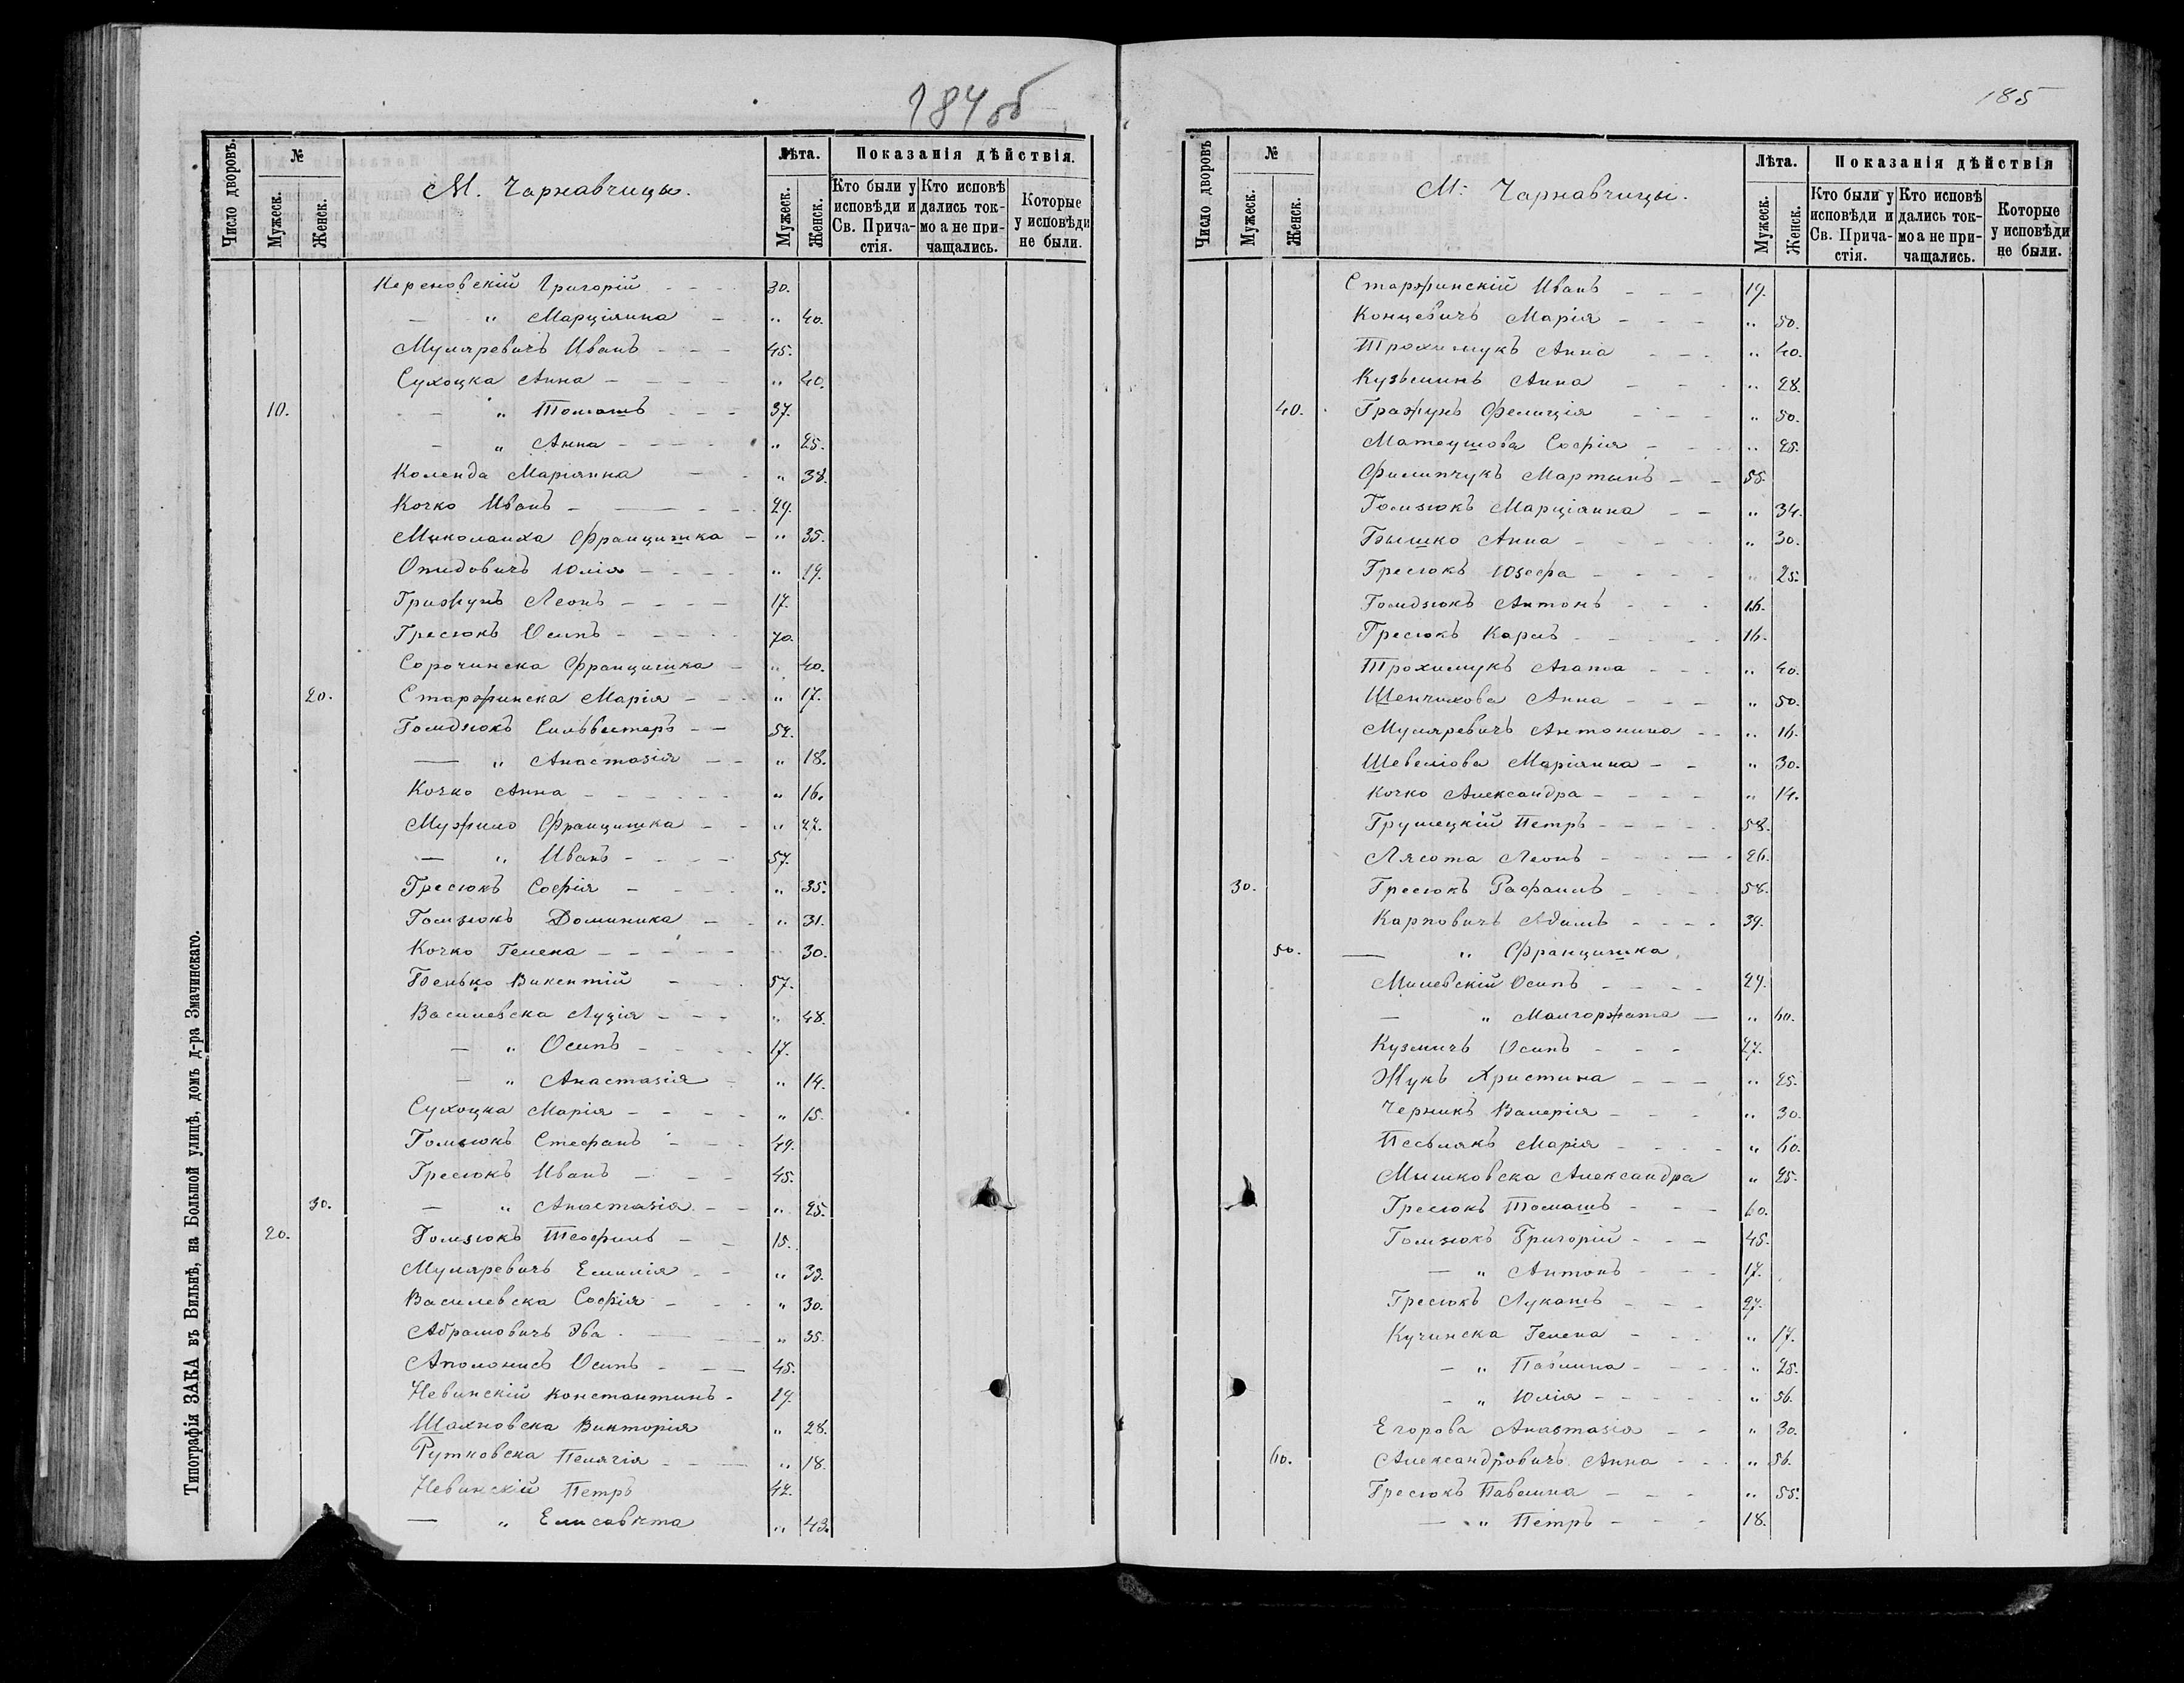 184 об
Число дворовъ.
№
Мужеск.
Женск.
М. Чарнавчицы.
Лѣта.
Мужеск.
Женск.
Показанія дѣйствія.
Кто были у исповѣди и Св. Прича-стія.
Кто исповѣ дались ток-мо а не при-чащались.
Которые у исповѣди не были.
Григорій - - - 30.
— " Марціянна - " 40.
Муляревичъ Иванъ - - - 45.
Сухоцка Анна - - - - " 40.
10. - " Томашъ - - - 37.
- " Анна - - - - " 25.
Коленда Маріянна - - " 38.
Кочко Иванъ - - - - 29.
Францишка - " 35.
Юлія - - - - " 19.
Леонъ - - - - 17.
Гресюкъ Осипъ - - - - 70.
Сорочинска Францишка - " 40.
20. Старжинска Марія - - - " 17.
Гомдзюкъ Сильвестеръ - - 54.
— " Анастазія - - " 18.
Кочко Анна - - - - - - " 16.
Мужило Францишка - - " 27.
— " Иванъ - - - - 57.
Гресюкъ Софія - - - - " 35.
Гомзюкъ Доминика - - " 31.
Кочко Гелена - - - - - 30.
Бенько Викентій - - 57.
Василевска Луція - - - " 48.
— " Осипъ - - - - 17.
— " Анастазія - " 14.
Сухоцка Марія - - - - " 15.
Гомзюкъ Стефанъ - - - 49.
Гресюкъ Иванъ - - - 45.
30. — " Анастазія - - " 25.
20. Гомзюкъ Теофиль - - 15.
Муляревичъ Емилія - - " 33.
Василевска Софія - - - " 30.
Абрамовичъ Эва - - - " 35.
Аполонисъ Осипъ - - - 45.
Невинскій Константинъ - 19.
Шахновска Викторія " 28.
Рутковска Пелягія - - - " 18.
Невинскій Петръ 47.
— " Елисавѣта " 43.
Типографія ЗАКА въ Вильнѣ, на Большой улицѣ, домъ д-ра Змачинскаго.
185
Число дворовъ
№
Мужеск.
Женск.
М: Чарнавчицы.
Лѣта.
Мужеск.
Женск.
Показанія дѣйствія
Кто были у исповѣди и Св. Прича-стія.
Кто исповѣ дались ток-мо а не при-чащались.
Которые у исповѣди не были.
Старжинскій Иванъ - - - 19.
Концевичъ Марія - - - " 50.
Трохимукъ Анна - - - " 40.
Кузьминъ Анна - - - " 28.
40. Гражунъ Фелиція - - - " 50.
Матеушова Софія - - - " 25.
Филипчукъ Мартынъ - - 55.
Гомзюкъ Марціанна - - " 34.
Бышко Анна - - - - - " 30.
Гресюкъ Юзефа - - - - " 25.
Гомдзюкъ Антонъ - - - 16.
Гресюкъ Карлъ - - - - - 16.
Трохимукъ Агата - - - " 40.
Шенчихова Анна - - - " 50.
Муляревичъ Антонина - - " 16.
Шевеліова Маріянна - - " 30.
Кочко Александра - - - - " 14.
Грушецкій Петръ - - - - 58.
Лясота Леонъ - - - - - 26.
30. Гресюкъ Рафаилъ - - - - 58.
Карповичъ Адамъ - - - - 39.
50. — " Францишка
Милевскій Осипъ - - - - 29.
— " Малгоржата - " 60.
Кузмичъ Осипъ - - - 27.
Жукъ Христина - - - " 25.
Черникъ Валерія - - - " 30.
Песлякъ Марія - - - - " 60.
Мышковска Александра " 25.
Гресюкъ Томашъ - - - 60.
Гомзюкъ Григорій - - - 45.
— " Антонъ - - - 17.
Гресюкъ Лукашъ - - - 27.
Кучинска Гелена - - - " 17.
— " Павлина - - - " 25.
— " Юлія - - - - - " 56.
Егорова Анастазія - - " 30.
60. Александровичъ Анна - - - " 56.
Гресюкъ Павлина - - - " 55.
— " Петръ - - - 18.